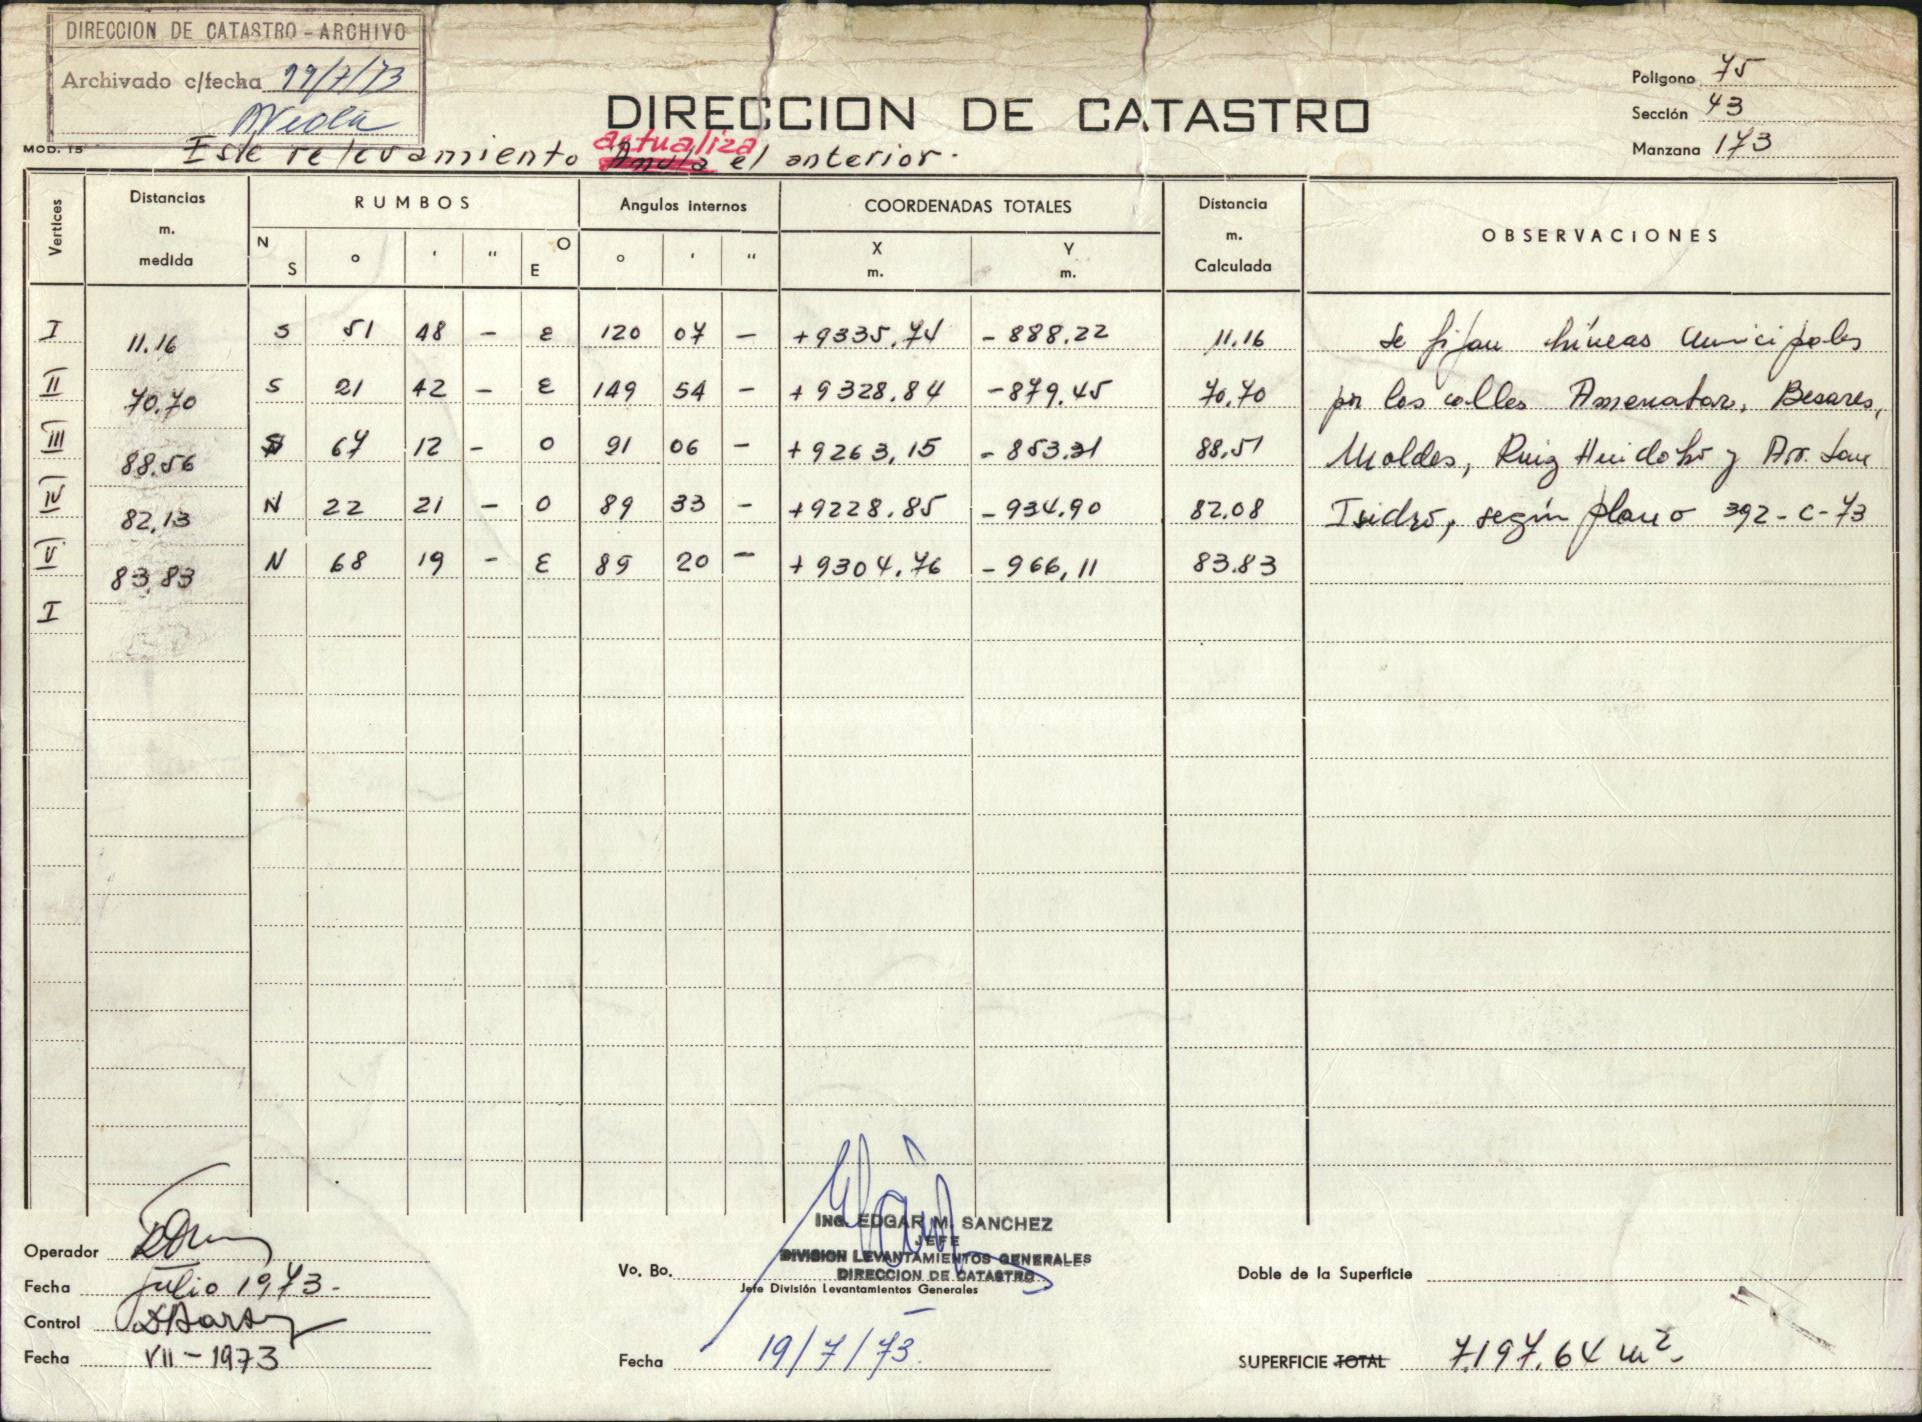 DIRECCION DE CATASTRO - ARCHIVO
Archivado c/fecha 19/7/73
DIRECCION DE CATASTRO
Poligono 75
Sección 43
Manzana 173
MOD. 15
actualiza
Este relevamiento Anula el anterior.
Vertices Distancias m. medida RUMBOS Angulos internos COORDENADAS TOTALES Distancia m. Calculada OBSERVACIONES
N S ° ' " O E ° ' " X m. Y m.
I 11.16 S 51 48 - E 120 07 - +9335,74 -888.22 11.16 Se fijan Líneas Municipales
II 70.70 S 21 42 - E 149 54 - +9328,84 -879.45 70,70 por las calles Amenabar, Besares,
III 88.56 S 67 12 - O 91 06 - +9263,15 -853.31 88,51 Moldes, Ruiz Huidobro y Av. San
IV 82,13 N 22 21 - O 89 33 - +9228.85 -934.90 82.08 Isidro, según plano 392-C-73
V 83,83 N 68 19 - E 89 20 - +9304.76 -966,11 83.83
I
Operador
Fecha Julio 1973.-
Control
Fecha VII-1973
ING. EDGAR M. SANCHEZ
JEFE
DIVISION LEVANTAMIENTOS GENERALES
DIRECCION DE CATASTRO
Vo. Bo.
Jefe División Levantamientos Generales
Fecha 19/7/73
Doble de la Superficie
SUPERFICIE TOTAL 7.197.64 m2.